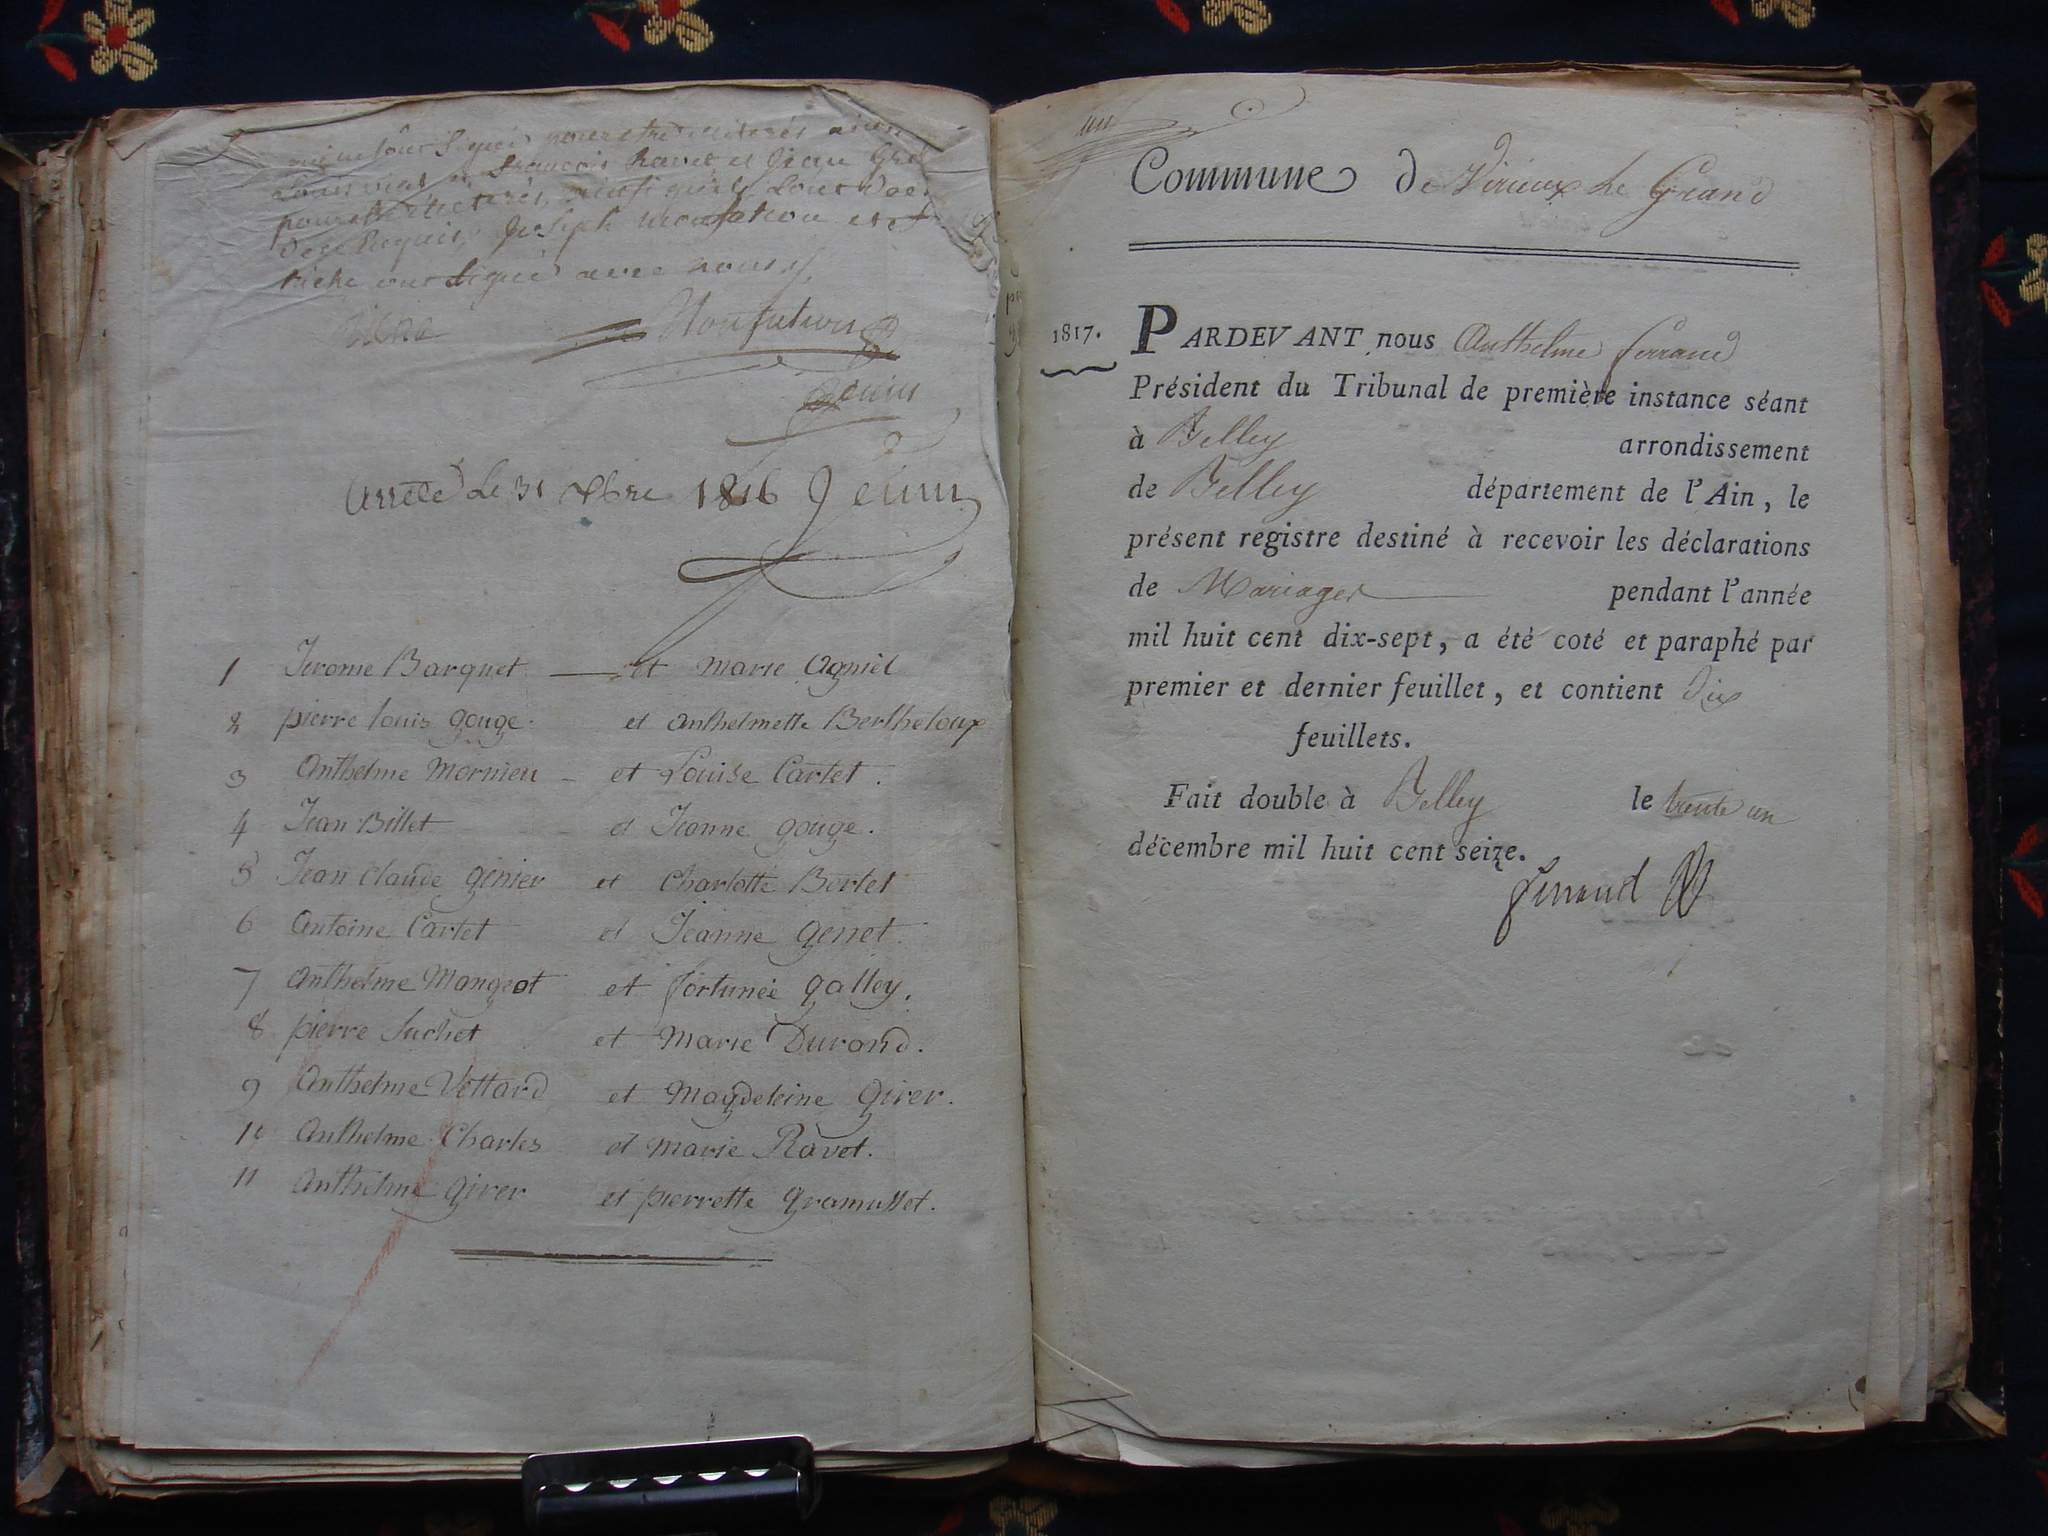 François Ravet et Jean
Joseph
signé avec nous
Arrêté Le 31 Xbre 1816 Jenin
1 Jerome Barquet et marie Agniel
2 pierre louis gouge. et Anthelmette Bertheloup
3 Anthelme Mornieu et Louise Cartet.
4 Jean Billet et Jeanne gouge.
5 Jean Claude ginier et Charlotte Bortet
6 Antoine Cartet et Jeanne genet.
7 Anthelme Mangeot et fortunée galley.
8 pierre Suchet et Marie Durand.
9 Anthelme Vettard et Magdeleine girer.
10 Anthelme Charles et marie Ravet.
11 Anthelme girer et pierrette gramusset.
Commune de Virieux Le Grand
1817. PARDEVANT nous Anthelme ferrand
Président du Tribunal de première instance séant
à Belley arrondissement
de Belley département de l'Ain, le
présent registre destiné à recevoir les déclarations
de Mariages pendant l'année
mil huit cent dix-sept, a été coté et paraphé par
premier et dernier feuillet, et contient dix
feuillets.
Fait double à Belley le trente un
décembre mil huit cent seize.
ferrand